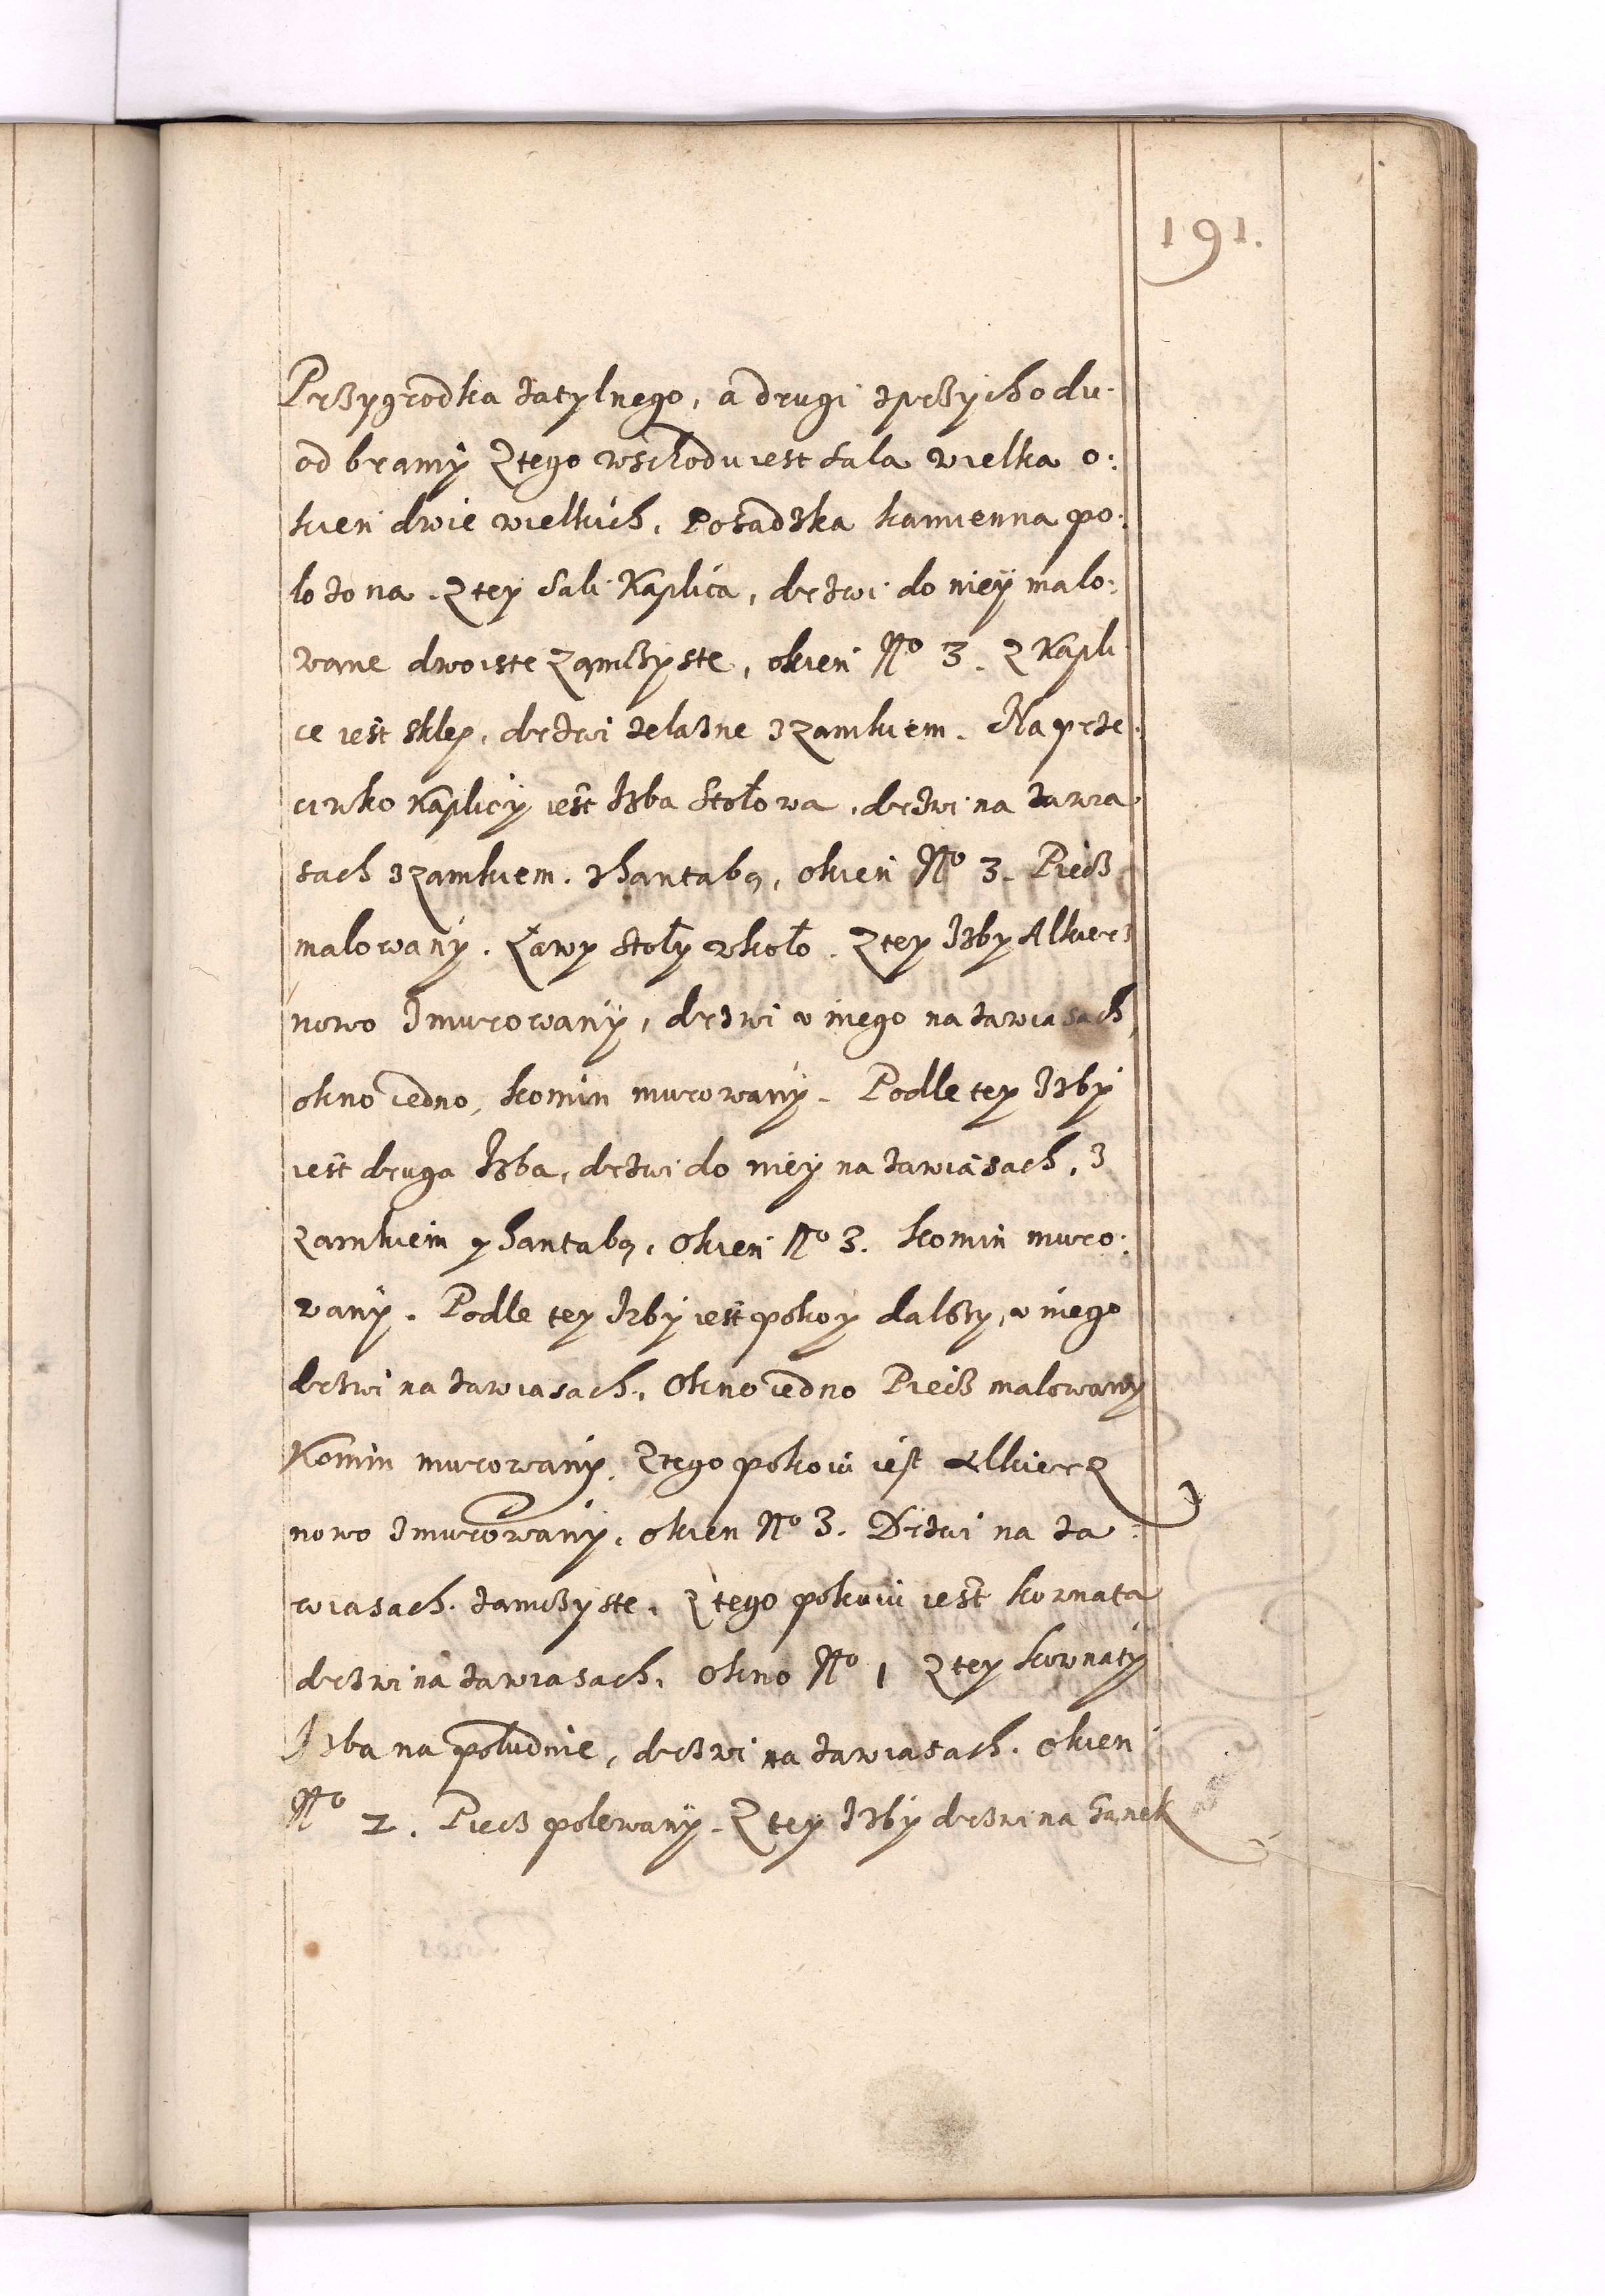 191.
Przygrodka zatylnego, a drugi zprzychodu
od bramy Ztego wschodu iest sala wielka o:
kien dwie wielkich. Posadzka kamienna po:
lozona. Ztey Sali Kaplica, drzwi do niey malo:
wane dwoiste zamczyste, okien No 3. Z Kapli
ce iest sklep, drzwi zelazne z zamkiem. Naprze
ciwko Kaplicy iest Izba Stołowa, drzwi na zawia
sach z zamkiem. z hantabą, okien No 3. Piecz
malowany. Ławy stoły wkoło. Ztey Izby Alkierz
nowo zmurowany, drzwi v niego na zawiasach,
okno iedno, komin murowany. Podle tey Izby
iest druga Izba, drzwi do niey na zawiasach, z
zamkiem y hantabą, okien No 3. komin muro:
wany. Podle tey Izby iest pokoy dalszy, v niego
drzwi na zawiasach, Okno iedno Piecz malowany
Komin murowany. Ztego pokoiu iest Alkierz
nowo zmurowany, okien No 3. Drzwi na za:
wiasach zamczyste. Ztego pokoiu iest komnata
drzwi na zawiasach, Okno No 1 Ztey komnaty
Izba na południe, drzwi na zawiasach. okien
No 2. Piecz polewany. Ztey Izby drzwi na Ganek